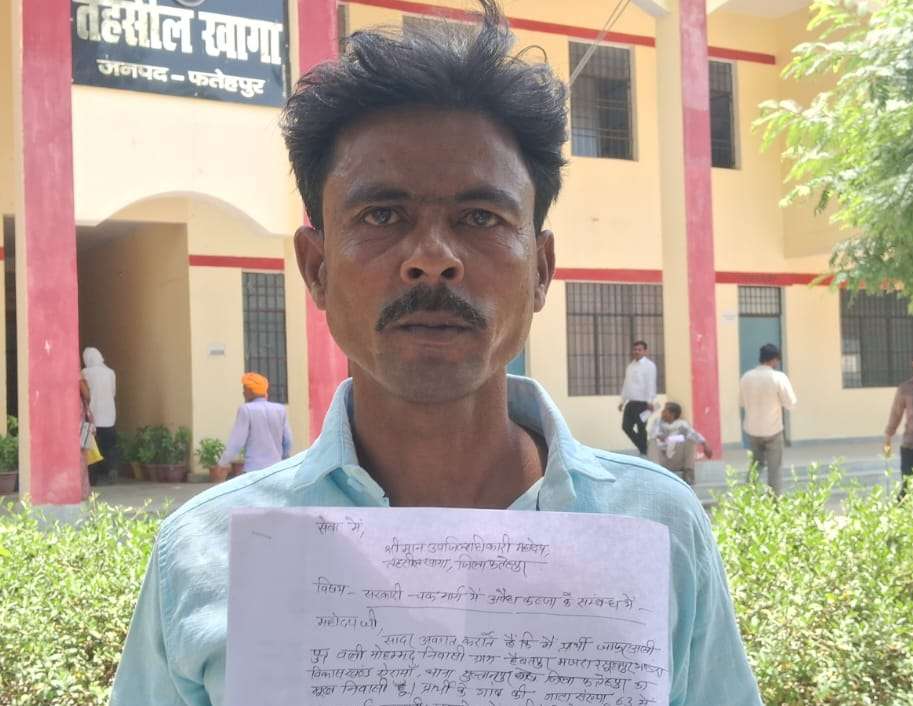 तहसील खागा
जनपद - फतेहपुर
सेवा में,
श्रीमान उपजिलाधिकारी महोदय,
तहसील खागा, जिला फतेहपुर
विषय - सरकारी चकमार्ग में अवैध कब्जा के सम्बन्ध में
महोदय जी,
सादर अवगत कराना है कि मैं प्रार्थी
पुत्र वली मोहम्मद निवासी ग्राम हैबतपुर मजरा
विकासखण्ड ऐरायाँ, थाना सुल्तानपुर घोष जिला फतेहपुर का
मूल निवासी हूँ। प्रार्थी के ग्राम की गाटा संख्या 63 में